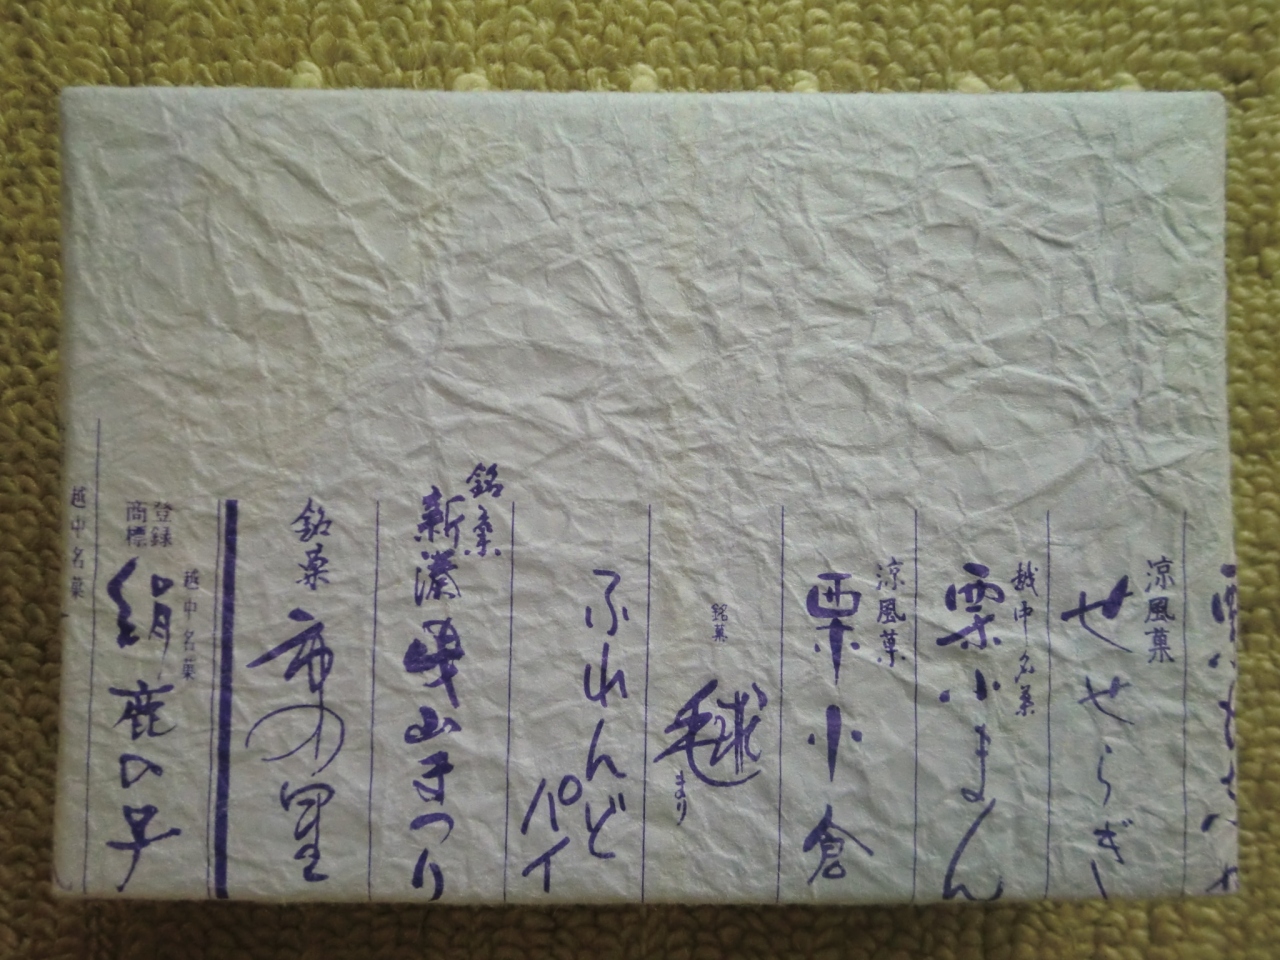 涼風菓
せせらぎ
越中名菓
栗小まん
涼風菓
栗小倉
銘菓
毬
まり
ふれんど
パイ
銘菓
新湊曳山まつり
銘菓
布の里
越中名菓
登録
商標
絹鹿の子
越中名菓